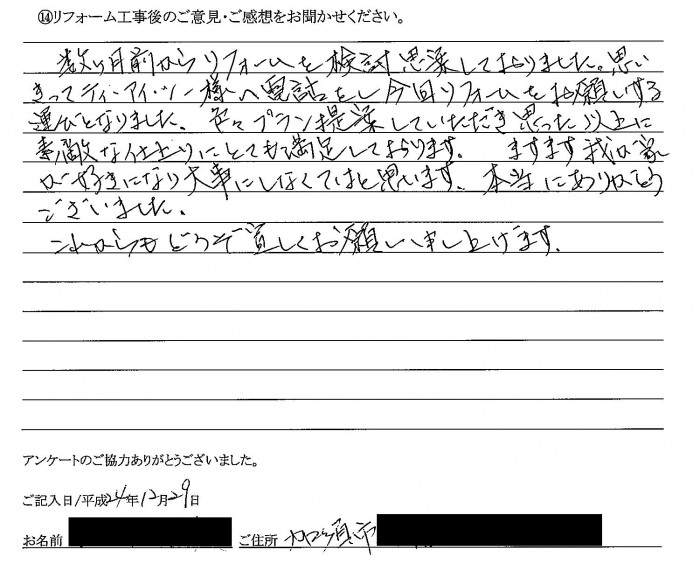 ⑭リフォーム工事後のご意見・ご感想をお聞かせください。
数ヶ月前からリフォームを検討思案しておりました。思い
きってティーアイ・ツー様へ電話をし今回リフォームをお願いする
運びとなりました。色々プラン提案していただき思った以上に
素敵な仕上りにとても満足しております。ますます我が家
が好きになり大事にしなくてはと思います。本当にありがとう
ございました。
これからもどうぞ宜しくお願い申し上げます。
アンケートのご協力ありがとうございました。
ご記入日/平成24年12月29日
お名前 ご住所 加須市